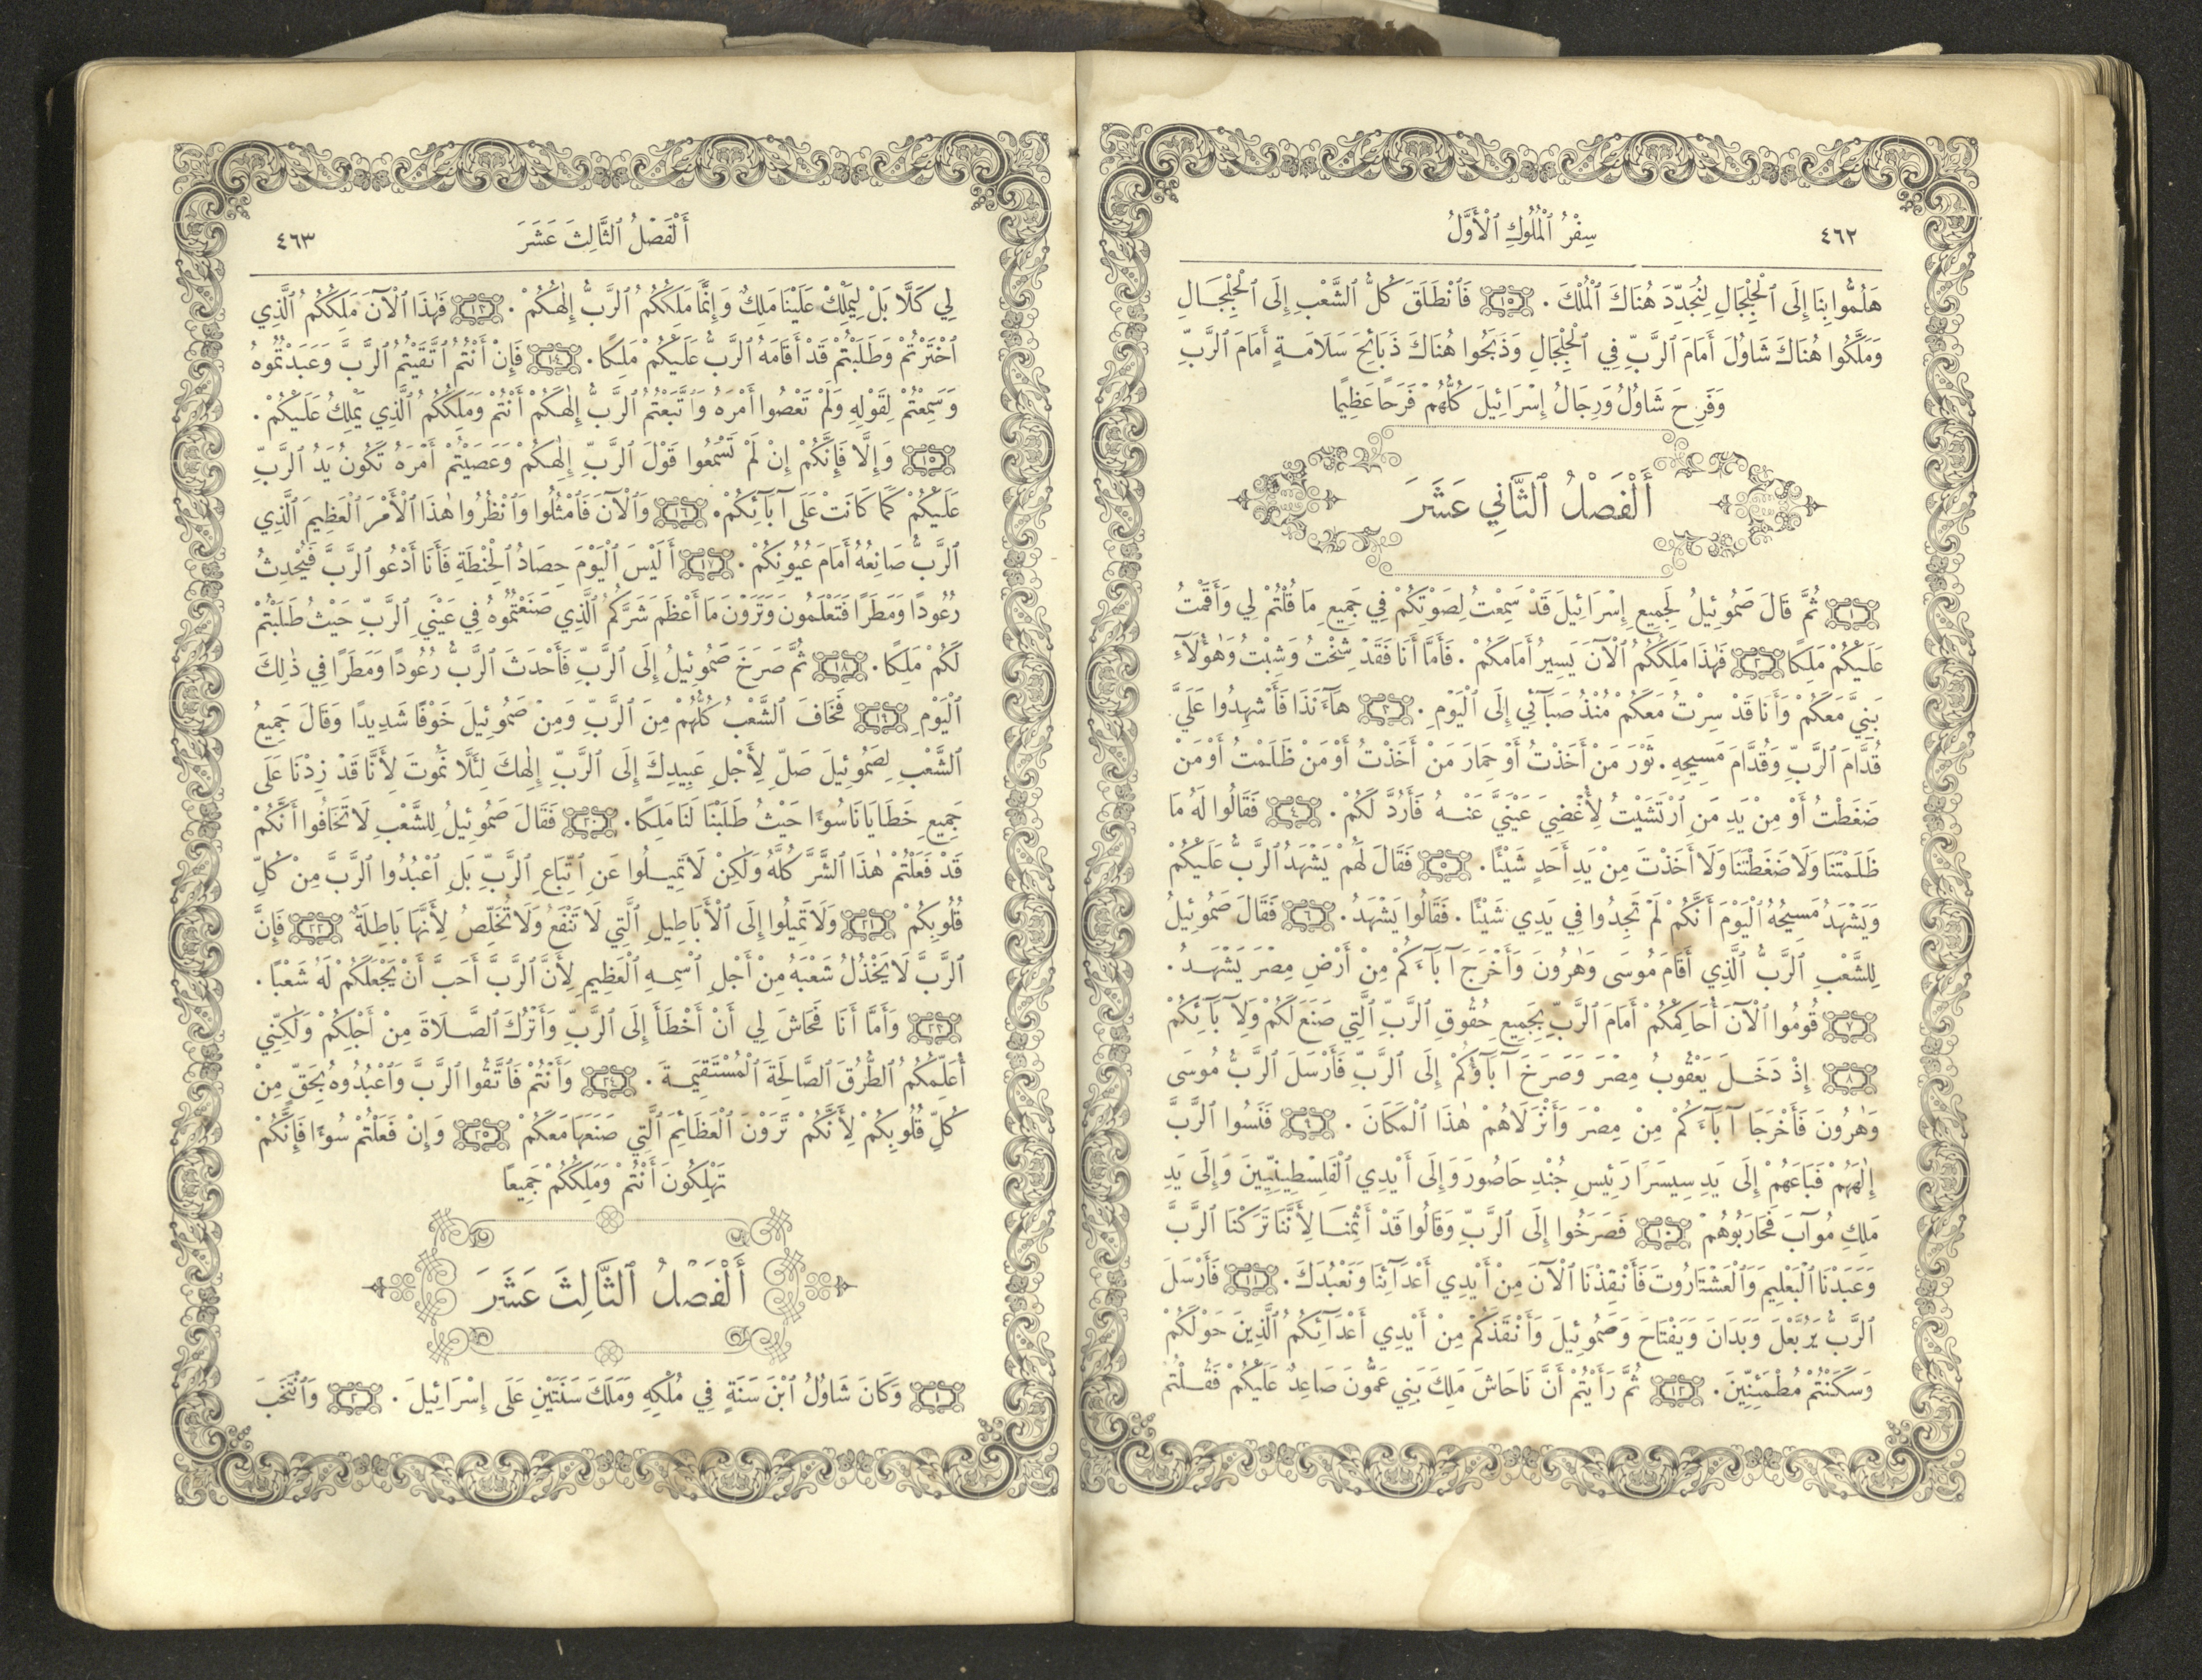 ٤٦٢ سِفْرُ ٱلْمُلُوكِ ٱلْأَوَّلُ
هَلُمُّوا بِنَا إِلَى ٱلْجِلْجَالِ لِنُجَدِّدَ هُنَاكَ ٱلْمُلْكَ. ١٥ فَٱنْطَلَقَ كُلُّ ٱلشَّعْبِ إِلَى ٱلْجِلْجَالِ
وَمَلَّكُوا هُنَاكَ شَاوُلَ أَمَامَ ٱلرَّبِّ فِي ٱلْجِلْجَالِ وَذَبَحُوا هُنَاكَ ذَبَائِحَ سَلَامَةٍ أَمَامَ ٱلرَّبِّ
وَفَرِحَ شَاوُلُ وَرِجَالُ إِسْرَائِيلَ كُلُّهُمْ فَرَحًا عَظِيمًا
أَلْفَصْلُ ٱلثَّانِي عَشَرَ
١ ثُمَّ قَالَ صَمُوئِيلُ لِجَمِيعِ إِسْرَائِيلَ قَدْ سَمِعْتُ لِصَوْتِكُمْ فِي جَمِيعِ مَا قُلْتُمْ لِي وَأَقَمْتُ
عَلَيْكُمْ مَلِكًا ٢ فَهٰذَا مَلِكُكُمُ ٱلْآنَ يَسِيرُ أَمَامَكُمْ. فَأَمَّا أَنَا فَقَدْ شِخْتُ وَشِبْتُ وَهٰؤُلَآءِ
بَنِيَّ مَعَكُمْ وَأَنَا قَدْ سِرْتُ مَعَكُمْ مُنْذُ صَبَآئِي إِلَى ٱلْيَوْمِ. ٣ هَآءَنَذَا فَٱشْهَدُوا عَلَيَّ
قُدَّامَ ٱلرَّبِّ وَقُدَّامَ مَسِيحِهِ. ثَوْرَ مَنْ أَخَذْتُ أَوْ حِمَارَ مَنْ أَخَذْتُ أَوْ مَنْ ظَلَمْتُ أَوْ مَنْ
ضَغَطْتُ أَوْ مِنْ يَدِ مَنِ ٱرْتَشَيْتُ لِأُغْضِيَ عَيْنَيَّ عَنْهُ فَأَرُدَّ لَكُمْ. ٤ فَقَالُوا لَهُ مَا
ظَلَمْتَنَا وَلَا ضَغَطْتَنَا وَلَا أَخَذْتَ مِنْ يَدِ أَحَدٍ شَيْئًا. ٥ فَقَالَ لَهُمْ يَشْهَدُ ٱلرَّبُّ عَلَيْكُمْ
وَيَشْهَدُ مَسِيحُهُ ٱلْيَوْمَ أَنَّكُمْ لَمْ تَجِدُوا فِي يَدِي شَيْئًا. فَقَالُوا يَشْهَدُ. ٦ فَقَالَ صَمُوئِيلُ
لِلشَّعْبِ ٱلرَّبُّ ٱلَّذِي أَقَامَ مُوسَى وَهٰرُونَ وَأَخْرَجَ آبَآءَكُمْ مِنْ أَرْضِ مِصْرَ يَشْهَدُ.
٧ قُومُوا ٱلْآنَ أُحَاكِمْكُمْ أَمَامَ ٱلرَّبِّ بِجَمِيعِ حُقُوقِ ٱلرَّبِّ ٱلَّتِي صَنَعَ لَكُمْ وَلِآبَآئِكُمْ
٨ إِذْ دَخَلَ يَعْقُوبُ مِصْرَ وَصَرَخَ آبَآؤُكُمْ إِلَى ٱلرَّبِّ فَأَرْسَلَ ٱلرَّبُّ مُوسَى
وَهٰرُونَ فَأَخْرَجَا آبَآءَكُمْ مِنْ مِصْرَ وَأَنْزَلَاهُمْ هٰذَا ٱلْمَكَانَ. ٩ فَنَسُوا ٱلرَّبَّ
إِلٰهَهُمْ فَبَاعَهُمْ إِلَى يَدِ سِيسَرَا رَئِيسِ جُنْدِ حَاصُورَ وَإِلَى أَيْدِي ٱلْفَلِسْطِينِيِّينَ وَإِلَى يَدِ
مَلِكِ مُوآبَ فَحَارَبُوهُمْ ١٠ فَصَرَخُوا إِلَى ٱلرَّبِّ وَقَالُوا قَدْ أَثِمْنَا لِأَنَّنَا تَرَكْنَا ٱلرَّبَّ
وَعَبَدْنَا ٱلْبَعْلِيمَ وَٱلْعَشْتَارُوتَ فَأَنْقِذْنَا ٱلْآنَ مِنْ أَيْدِي أَعْدَآئِنَا وَنَعْبُدَكَ. ١١ فَأَرْسَلَ
ٱلرَّبُّ يَرُبَّعْلَ وَبَدَانَ وَيَفْتَاحَ وَصَمُوئِيلَ وَأَنْقَذَكُمْ مِنْ أَيْدِي أَعْدَآئِكُمُ ٱلَّذِينَ حَوْلَكُمْ
وَسَكَنْتُمْ مُطْمَئِنِّينَ. ١٢ ثُمَّ رَأَيْتُمْ أَنَّ نَاحَاشَ مَلِكَ بَنِي عَمُّونَ صَاعِدٌ عَلَيْكُمْ فَقُلْتُمْ
أَلْفَصْلُ ٱلثَّالِثَ عَشَرَ ٤٦٣
لِي كَلَّا بَلْ لِيَمْلِكْ عَلَيْنَا مَلِكٌ وَإِنَّمَا مَلِكُكُمُ ٱلرَّبُّ إِلٰهُكُمْ. ١٣ فَهٰذَا ٱلْآنَ مَلِكُكُمُ ٱلَّذِي
ٱخْتَرْتُمْ وَطَلَبْتُمْ قَدْ أَقَامَهُ ٱلرَّبُّ عَلَيْكُمْ مَلِكًا. ١٤ فَإِنْ أَنْتُمُ ٱتَّقَيْتُمُ ٱلرَّبَّ وَعَبَدْتُمُوهُ
وَسَمِعْتُمْ لِقَوْلِهِ وَلَمْ تَعْصُوا أَمْرَهُ وَٱتَّبَعْتُمُ ٱلرَّبَّ إِلٰهَكُمْ أَنْتُمْ وَمَلِكُكُمُ ٱلَّذِي يَمْلِكُ عَلَيْكُمْ.
١٥ وَإِلَّا فَإِنَّكُمْ إِنْ لَمْ تَسْمَعُوا قَوْلَ ٱلرَّبِّ إِلٰهِكُمْ وَعَصَيْتُمْ أَمْرَهُ تَكُونُ يَدُ ٱلرَّبِّ
عَلَيْكُمْ كَمَا كَانَتْ عَلَى آبَآئِكُمْ. ١٦ وَٱلْآنَ فَٱمْثُلُوا وَٱنْظُرُوا هٰذَا ٱلْأَمْرَ ٱلْعَظِيمَ ٱلَّذِي
ٱلرَّبُّ صَانِعُهُ أَمَامَ عُيُونِكُمْ. ١٧ أَلَيْسَ ٱلْيَوْمَ حِصَادُ ٱلْحِنْطَةِ فَأَنَا أَدْعُو ٱلرَّبَّ فَيُحْدِثُ
رُعُودًا وَمَطَرًا فَتَعْلَمُونَ وَتَرَوْنَ مَا أَعْظَمَ شَرَّكُمُ ٱلَّذِي صَنَعْتُمُوهُ فِي عَيْنَيِ ٱلرَّبِّ حَيْثُ طَلَبْتُمْ
لَكُمْ مَلِكًا. ١٨ ثُمَّ صَرَخَ صَمُوئِيلُ إِلَى ٱلرَّبِّ فَأَحْدَثَ ٱلرَّبُّ رُعُودًا وَمَطَرًا فِي ذٰلِكَ
ٱلْيَوْمِ ١٩ فَخَافَ ٱلشَّعْبُ كُلُّهُمْ مِنَ ٱلرَّبِّ وَمِنْ صَمُوئِيلَ خَوْفًا شَدِيدًا وَقَالَ جَمِيعُ
ٱلشَّعْبِ لِصَمُوئِيلَ صَلِّ لِأَجْلِ عَبِيدِكَ إِلَى ٱلرَّبِّ إِلٰهِكَ لِئَلَّا نَمُوتَ لِأَنَّا قَدْ زِدْنَا عَلَى
جَمِيعِ خَطَايَانَا سُوءًا حَيْثُ طَلَبْنَا لَنَا مَلِكًا. ٢٠ فَقَالَ صَمُوئِيلُ لِلشَّعْبِ لَا تَخَافُوا أَنَّكُمْ
قَدْ فَعَلْتُمْ هٰذَا ٱلشَّرَّ كُلَّهُ وَلٰكِنْ لَا تَمِيلُوا عَنِ ٱتِّبَاعِ ٱلرَّبِّ بَلِ ٱعْبُدُوا ٱلرَّبَّ مِنْ كُلِّ
قُلُوبِكُمْ ٢١ وَلَا تَمِيلُوا إِلَى ٱلْأَبَاطِيلِ ٱلَّتِي لَا تَنْفَعُ وَلَا تُخَلِّصُ لِأَنَّهَا بَاطِلَةٌ ٢٢ فَإِنَّ
ٱلرَّبَّ لَا يَخْذُلُ شَعْبَهُ مِنْ أَجْلِ ٱسْمِهِ ٱلْعَظِيمِ لِأَنَّ ٱلرَّبَّ أَحَبَّ أَنْ يَجْعَلَكُمْ لَهُ شَعْبًا.
٢٣ وَأَمَّا أَنَا فَحَاشَ لِي أَنْ أَخْطَأَ إِلَى ٱلرَّبِّ وَأَتْرُكَ ٱلصَّلَاةَ مِنْ أَجْلِكُمْ وَلٰكِنِّي
أُعَلِّمُكُمُ ٱلطُّرُقَ ٱلصَّالِحَةَ ٱلْمُسْتَقِيمَةَ. ٢٤ وَأَنْتُمْ فَٱتَّقُوا ٱلرَّبَّ وَٱعْبُدُوهُ بِحَقٍّ مِنْ
كُلِّ قُلُوبِكُمْ لِأَنَّكُمْ تَرَوْنَ ٱلْعَظَائِمَ ٱلَّتِي صَنَعَهَا مَعَكُمْ ٢٥ وَإِنْ فَعَلْتُمْ سُوءًا فَإِنَّكُمْ
تَهْلِكُونَ أَنْتُمْ وَمَلِكُكُمْ جَمِيعًا
أَلْفَصْلُ ٱلثَّالِثَ عَشَرَ
١ وَكَانَ شَاوُلُ ٱبْنَ سَنَةٍ فِي مُلْكِهِ وَمَلَكَ سَنَتَيْنِ عَلَى إِسْرَائِيلَ. ٢ وَٱنْتَخَبَ